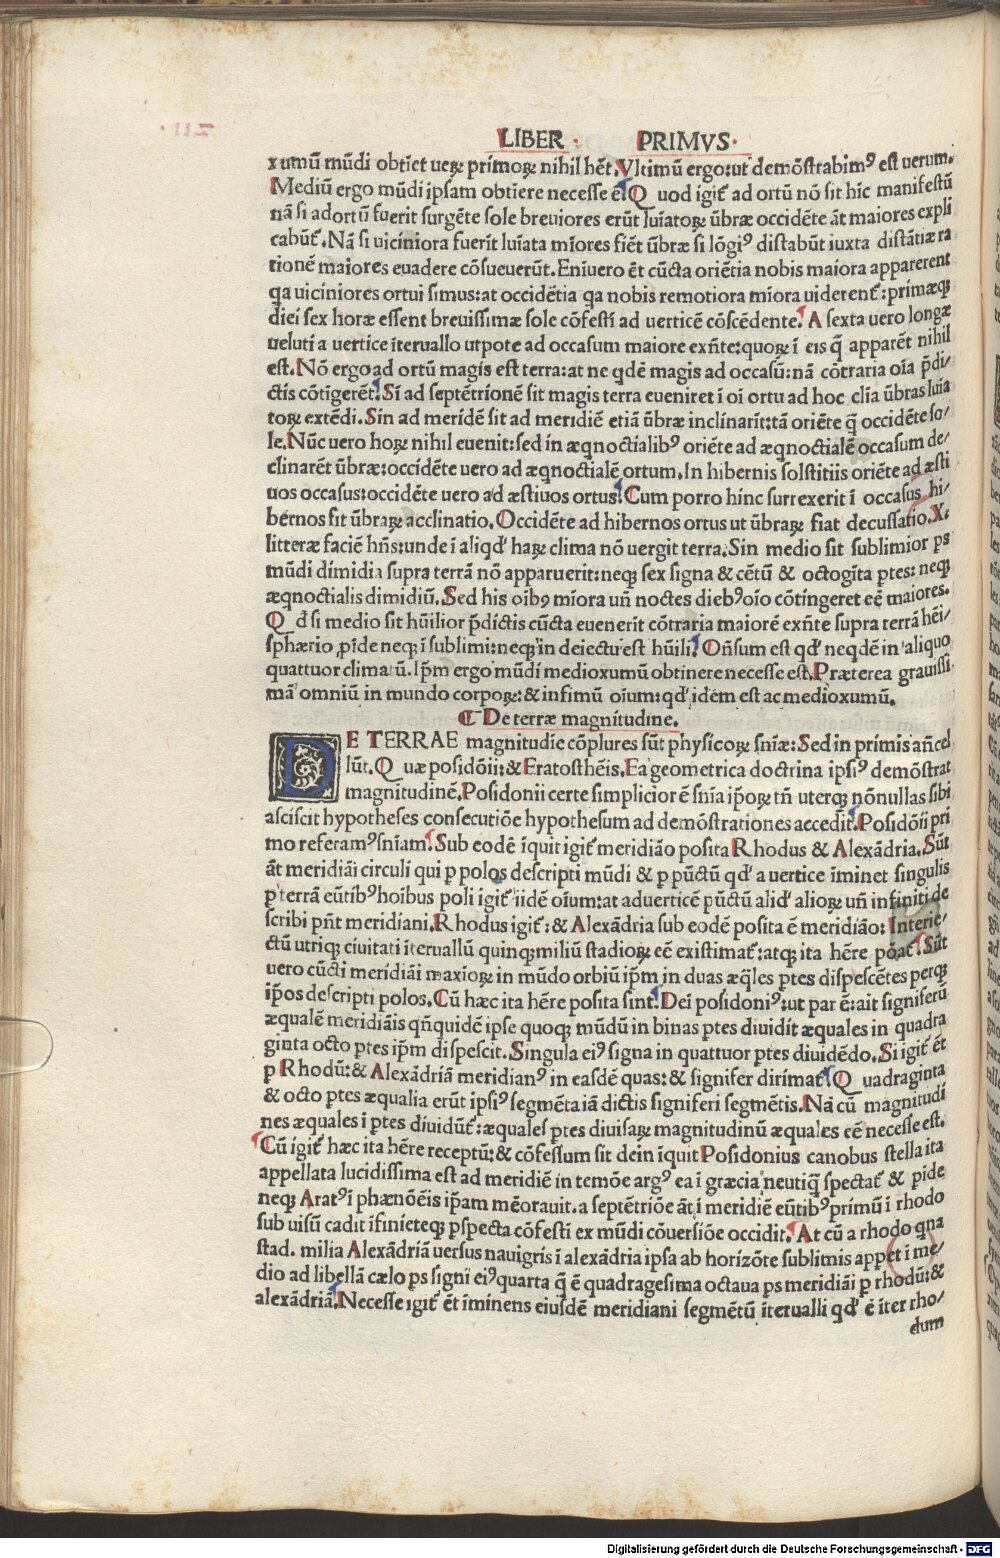 LIBER PRIMVS.
xumũ mũdi obtiet ueꝝ primoꝝ nihil hẽt. Vltimũ ergo: ut demõstrabimꝰ est uerum.
Mediũ ergo mũdi ipsam obtiere necesse ẽ. Quod igit̃ ad ortũ nõ sit hic manifestũ
nã si ad ortũ fuerit surgẽte sole breuiores erũt luĩatoꝝ ũbræ occidẽte ãt maiores expli
cabũt̃. Nã si uiciniora fuerĩt luĩata mĩores fiẽt ũbræ si lõgiꝰ distabũt iuxta distãtiæ ra
tionẽ maiores euadere cõsueuerũt. Eniuero ẽt cũcta oriẽtia nobis maiora apparerent
qa uiciniores ortui simus: at occidẽtia qa nobis remotiora mĩora uiderent̃: primæqꝫ
diei sex horæ essent breuissimæ sole cõfestĩ ad uerticẽ cõscẽdente. A sexta uero longæ
ueluti a uertice ĩteruallo utpote ad occasum maiore exñte: quoꝝ ĩ eis q̃ apparẽt nihil
est. Nõ ergo ad ortũ magis est terra: at ne qdẽ magis ad occasũ: nã cõtraria oĩa p̃di/
ctis cõtigerẽt. Si ad septẽtrionẽ sit magis terra eueniret ĩ oi ortu ad hoc clĩa ũbras luĩa
toꝝ extẽdi. Sin ad meridẽ sit ad meridiẽ etiã ũbræ inclinarĩt: tã oriẽte q̃ occidẽte so/
le. Nũc uero hoꝝ nihil euenit: sed in æqnoctialibꝰ oriẽte ad æqnoctialẽ occasum de/
clinarẽt ũbræ: occidẽte uero ad æqnoctialẽ ortum. In hibernis solstitiis oriẽte ad æsti
uos occasus: occidẽte uero ad æstiuos ortus. Cum porro hinc surrexerit ĩ occasus hi/
bernos fit ũbraꝝ acclinatio. Occidẽte ad hibernos ortus ut ũbraꝝ fiat decussatio. X.
litteræ faciẽ hñs: unde ĩ aliqd' haꝝ clima nõ uergit terra. Sin medio sit sublimior ps
mũdi dimidia supra terrã nõ apparuerit: neqꝫ sex signa & cẽtũ & octogĩta ptes: neqꝫ
æqnoctialis dimidiũ. Sed his oibꝰ mĩora uñ noctes diebꝰ oĩo cõtĩngeret eẽ maiores.
Qd' si medio sit hũilior p̃dictis cũcta euenerit cõtraria maiorẽ exñte supra terrã hẽi/
sphærio ꝓĩde neqꝫ ĩ sublimi: neqꝫ in deiectu est hũili. Oñsum est qd' neqdẽ in aliquo
quattuor climatũ. Ip̃m ergo mũdi medioxumũ obtinere necesse est. Præterea grauissi
mã omniũ in mundo corpoꝝ: & infimũ oĩum: qd' idem est ac medioxumũ.
De terræ magnitudine.
DE TERRAE magnitudie cõplures sũt physicoꝝ sñiæ: Sed in primis añcel
lũt. Quæ posidõii: & Eratosthẽis. Ea geometrica doctrina ipsiꝰ demõstrat
magnitudinẽ. Posidonii certe simplicior ẽ sñia ip̃oꝝ tñ uterqꝫ nõnullas sibi
asciscit hypotheses consecutiõe hypothesum ad demõstrationes accedit. Posidõii pri
mo referamꝰ sñiam. Sub eodẽ ĩquit igit̃ meridião posita Rhodus & Alexãdria. Sũt
ãt meridiãi circuli qui p polos descripti mũdi & p pũctũ qd' a uertice ĩminet singulis
p terrã eũtibꝰ hoibus poli igit̃ iidẽ oĩum: at aduerticẽ pũctũ alid' alioꝝ uñ infiniti de
scribi pñt meridiani. Rhodus igit̃: & Alexãdria sub eodẽ posita ẽ meridião: Interie/
ctũ utriqꝫ ciuitati ĩteruallũ quinqꝫ miliũ stadioꝝ eẽ existimat̃: atqꝫ ita hẽre põat̃. Sũt
uero cũcti meridiãi maxioꝝ in mũdo orbiũ ip̃m in duas æq̃les ptes dispescẽtes perqꝫ
ip̃os descripti polos. Cũ hæc ita hẽre posita sint. Dei posidoniꝰ: ut par ẽ: ait signiferũ
æqualẽ meridiãis qñquidẽ ipse quoqꝫ mũdũ in binas ptes diuidit æquales in quadra
ginta octo ptes ip̃m dispescit. Singula eiꝰ signa in quattuor ptes diuidẽdo. Si igit̃ ẽt
p Rhodũ: & Alexãdriã meridianꝰ in easdẽ quas: & signifer dirimat̃. Quadraginta
& octo ptes æqualia erũt ipsiꝰ segmẽta iã dictis signiferi segmẽtis. Nã cũ magnitudi
nes æquales ĩ ptes diuidũt̃: æquales ptes diuisaꝝ magnitudinũ æquales eẽ necesse est.
Cũ igit̃ hæc ita hẽre receptũ: & cõfessum sit dein ĩquit Posidonius canobus stella ita
appellata lucidissima est ad meridiẽ in temõe argꝰ ea ĩ græcia neutiq̃ spectat̃ & pĩde
neqꝫ Aratꝰ ĩ phænõẽis ip̃am mẽorauit. a septẽtriõe ãt ĩ meridiẽ eũtibꝰ primũ ĩ rhodo
sub uisũ cadit ĩfinĩeteqꝫ pspecta cõfestĩ ex mũdi cõuersiõe occidit. At cũ a rhodo qna
stad. milia Alexãdriã uersus nauigris ĩ alexãdria ipsa ab horizõte sublimis appet ĩ me/
dio ad libellã cælo ps signi eiꝰ quarta q̃ ẽ quadragesima octaua ps meridiãi p rhodũ: &
alexãdriã. Necesse igit̃ ẽt ĩminens eiusdẽ meridiani segmẽtũ ĩterualli qd' ẽ ĩter rho/
dum
Digitalisierung gefördert durch die Deutsche Forschungsgemeinschaft - DFG